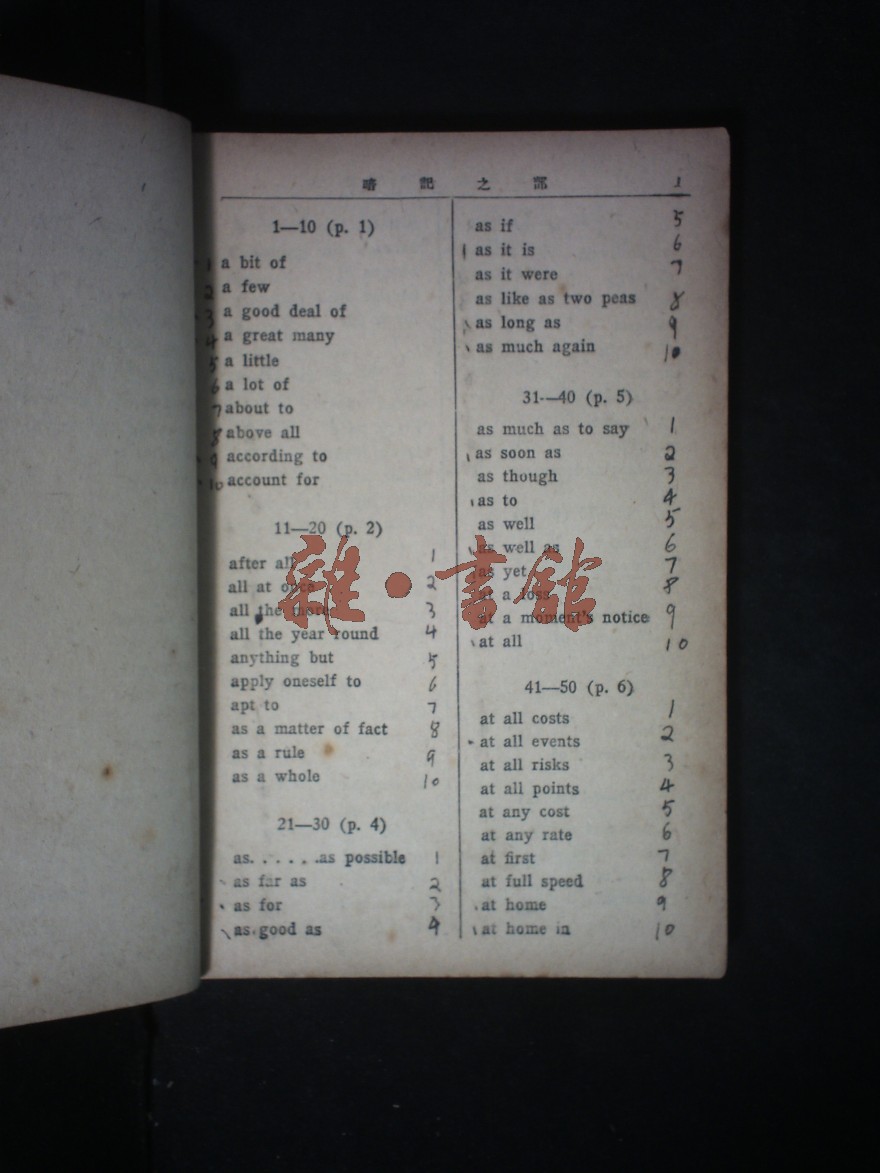 暗 記 之 部 1
1—10 (p. 1)
1 a bit of
2 a few
3 a good deal of
4 a great many
5 a little
6 a lot of
7 about to
8 above all
9 according to
10 account for
11—20 (p. 2)
after all 1
all at once 2
all the more 3
all the year round 4
anything but 5
apply oneself to 6
apt to 7
as a matter of fact 8
as a rule 9
as a whole 10
21—30 (p. 4)
as. . . . . .as possible 1
as far as 2
as for 3
as good as 4
as if 5
as it is 6
as it were 7
as like as two peas 8
as long as 9
as much again 10
31—40 (p. 5)
as much as to say 1
as soon as 2
as though 3
as to 4
as well 5
as well as 6
as yet 7
at a loss 8
at a moment's notice 9
at all 10
41—50 (p. 6)
at all costs 1
at all events 2
at all risks 3
at all points 4
at any cost 5
at any rate 6
at first 7
at full speed 8
at home 9
at home in 10
雜·書館